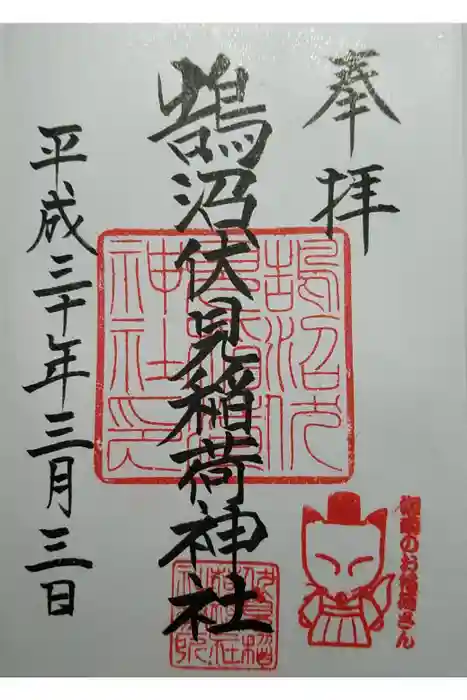 奉拝
鵠沼伏見稲荷神社
平成三十年三月三日
鵠沼伏
見稲荷
神社印
湘南のお稲荷さん